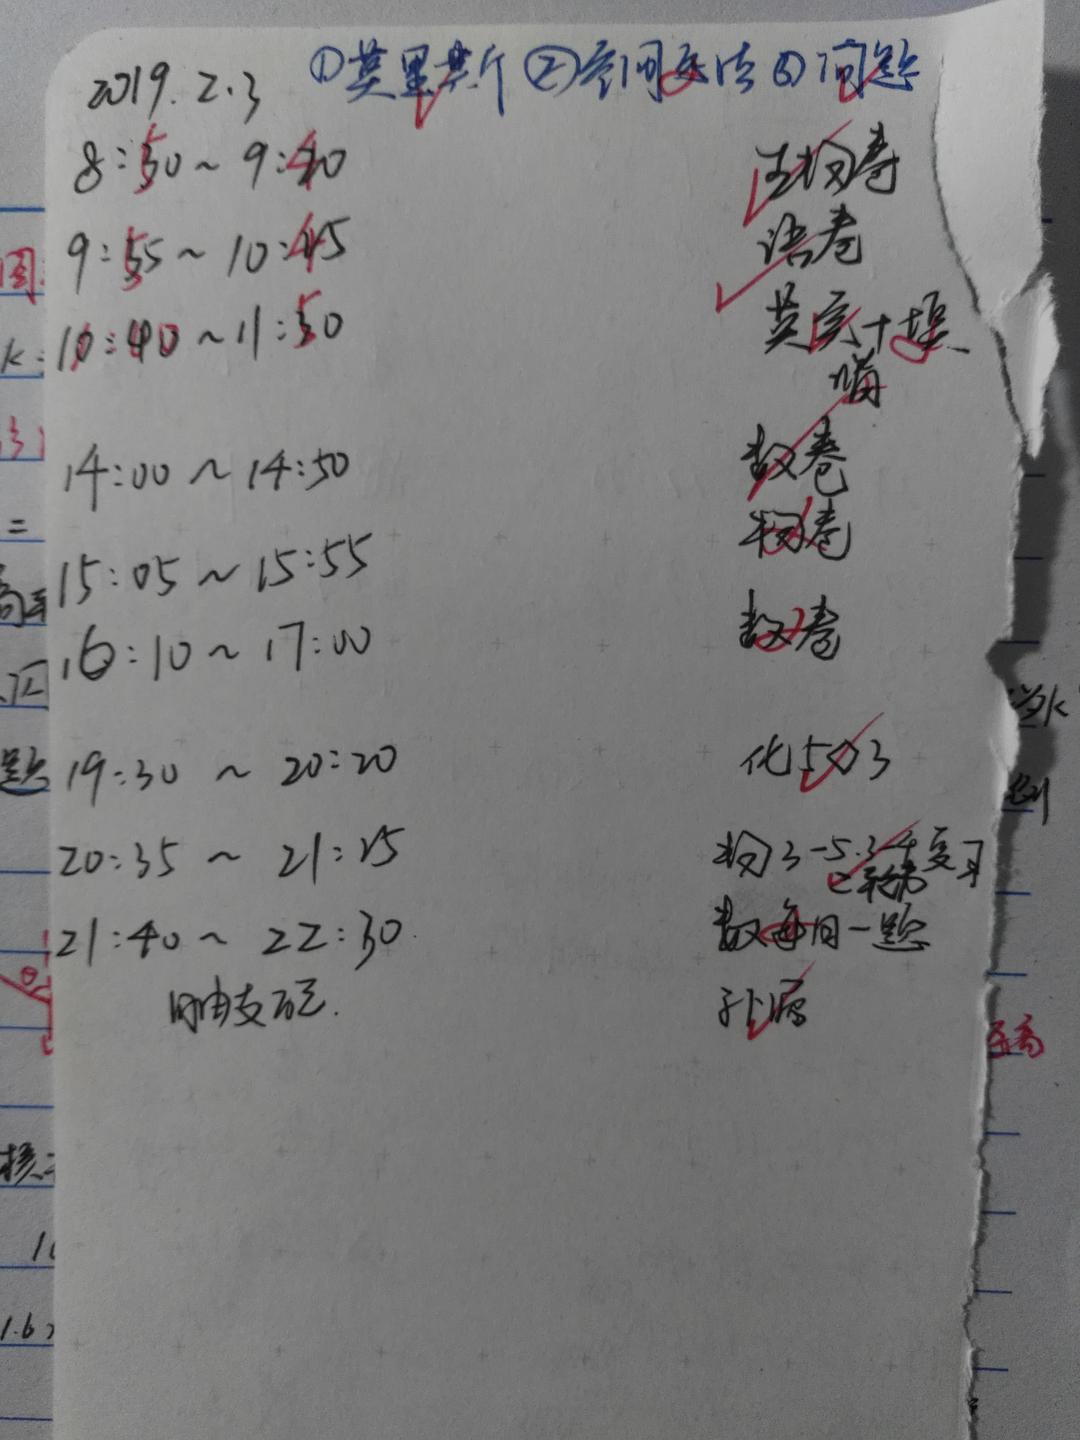 2019.2.3 ①莫里斯 ②空间方法 ③问题
8:50~9:40 生物卷
9:55~10:45 语卷
11:00~11:50 英完+填
14:00~14:50 数卷
15:05~15:55 物卷
16:10~17:00 数卷
19:30~20:20 化5·3
20:35~21:25 物3-5.3-4复习
21:40~22:30 数每日一题
自由支配.
题
1.6